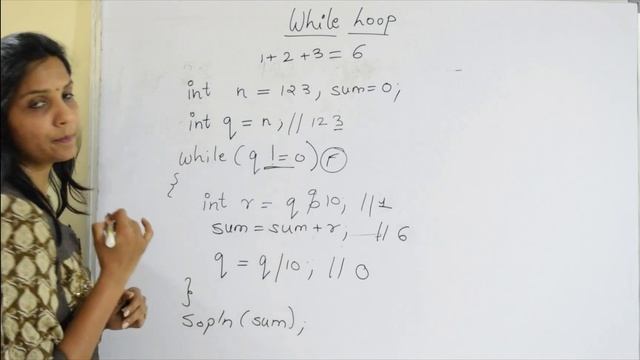 While Loop
1+2+3=6
int n = 123, sum=0;
int q = n; // 123
while (q != 0) F
{
int r = q % 10; // 1
sum = sum + r; // 6
q = q/10; // 0
}
Sopln (sum);